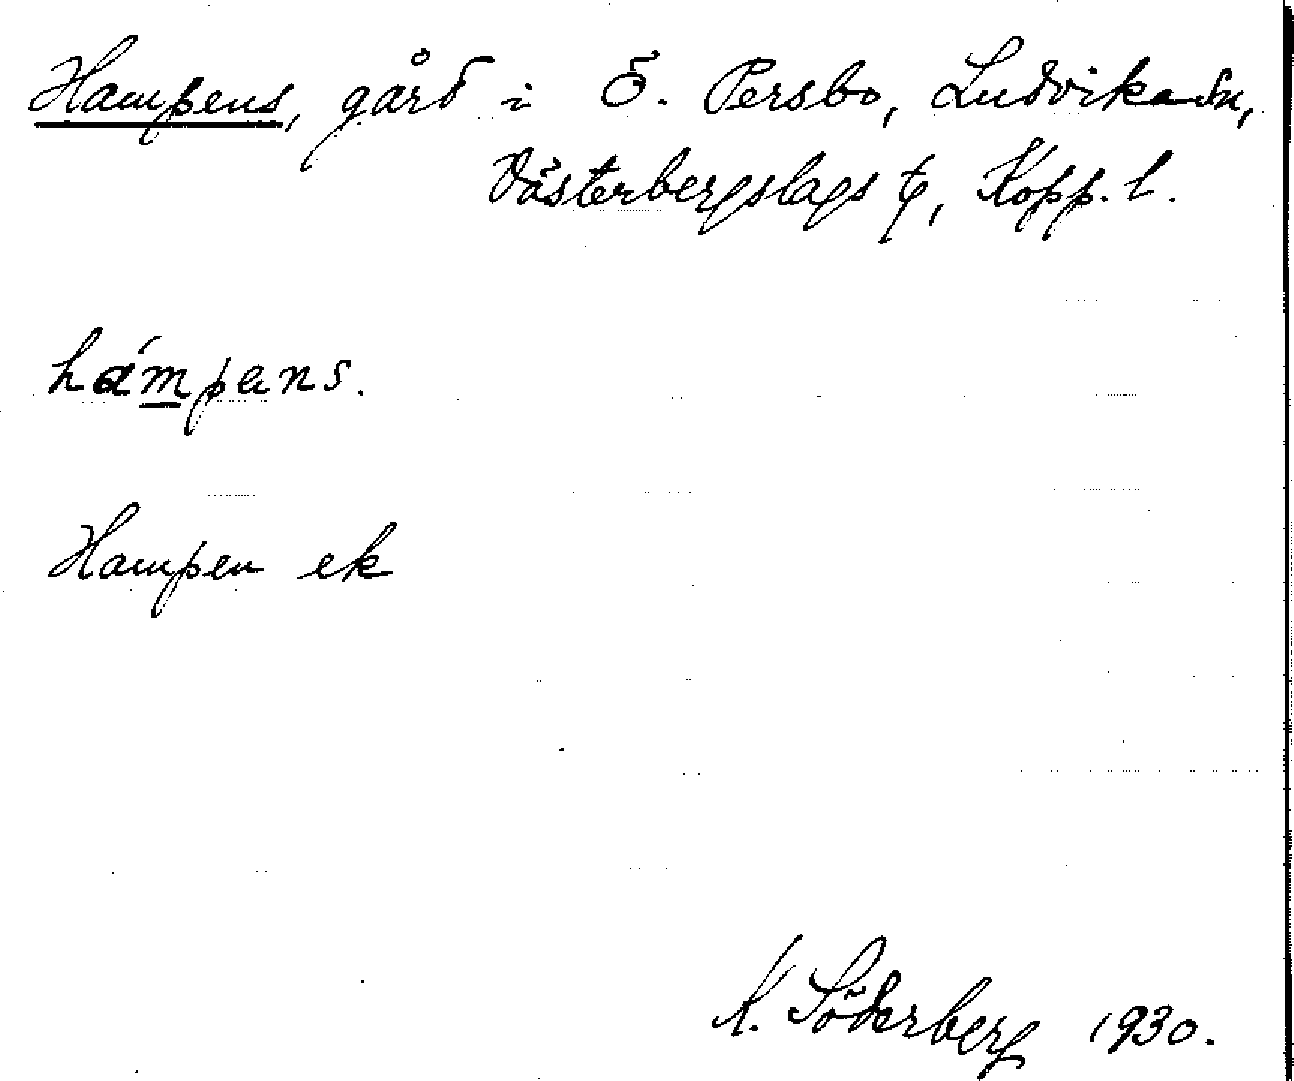 Hampens, gård i Ö. Persbo, Ludvika sn,
Västerbergslags tg, Kopp. l.
hámpans.
Hampen ek
K. Söderberg 1930.